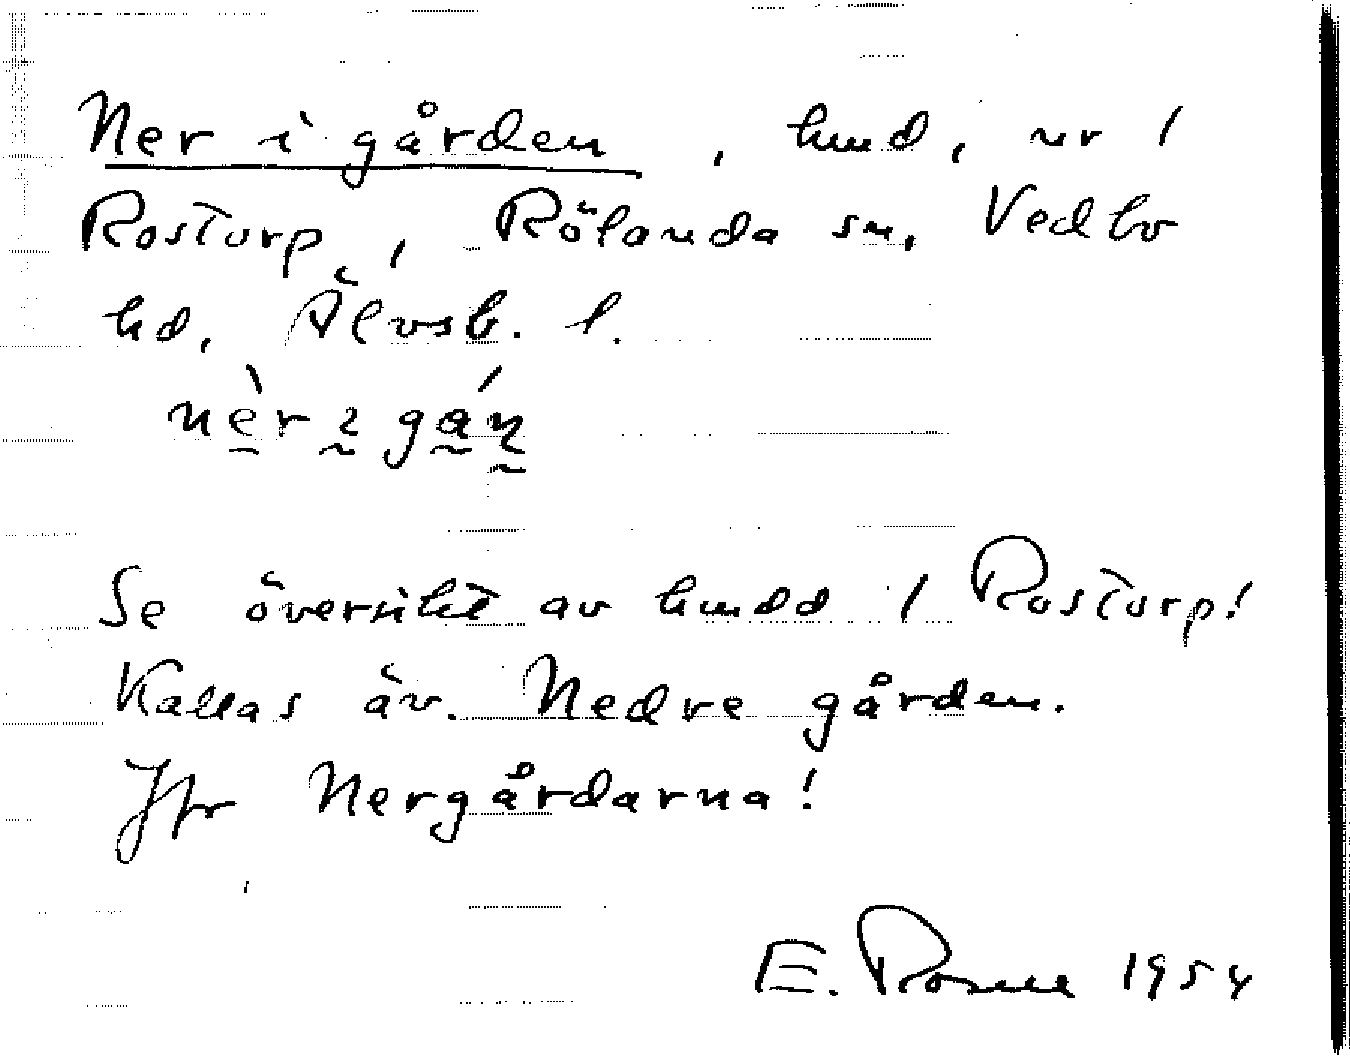 Ner i gården, hmd, nr 1
Rostorp, Rölanda sn, Vedbo
hd, Älvsb. l.
nèr i gán
Se översikt av hmdd 1 Rostorp!
Kallas äv. Nedre gården.
Jfr Nergårdarna!
E. Rosne 1954